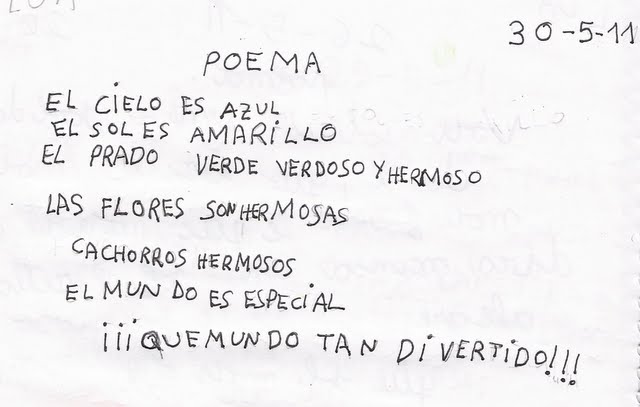 30-5-11
POEMA
EL CIELO ES AZUL
EL SOL ES AMARILLO
EL PRADO VERDE VERDOSO Y HERMOSO
LAS FLORES SON HERMOSAS
CACHORROS HERMOSOS
EL MUNDO ES ESPECIAL
¡¡¡QUE MUNDO TAN DIVERTIDO!!!